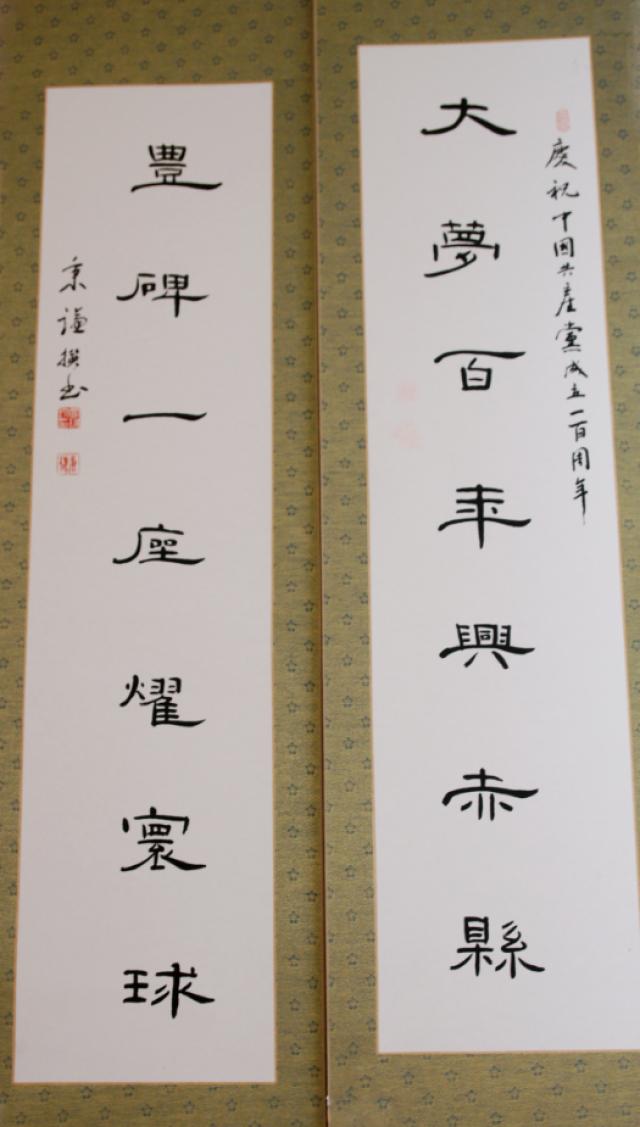 慶祝中國共產黨成立一百周年
大夢百年興赤縣
豐碑一座耀寰球
京謙撰书